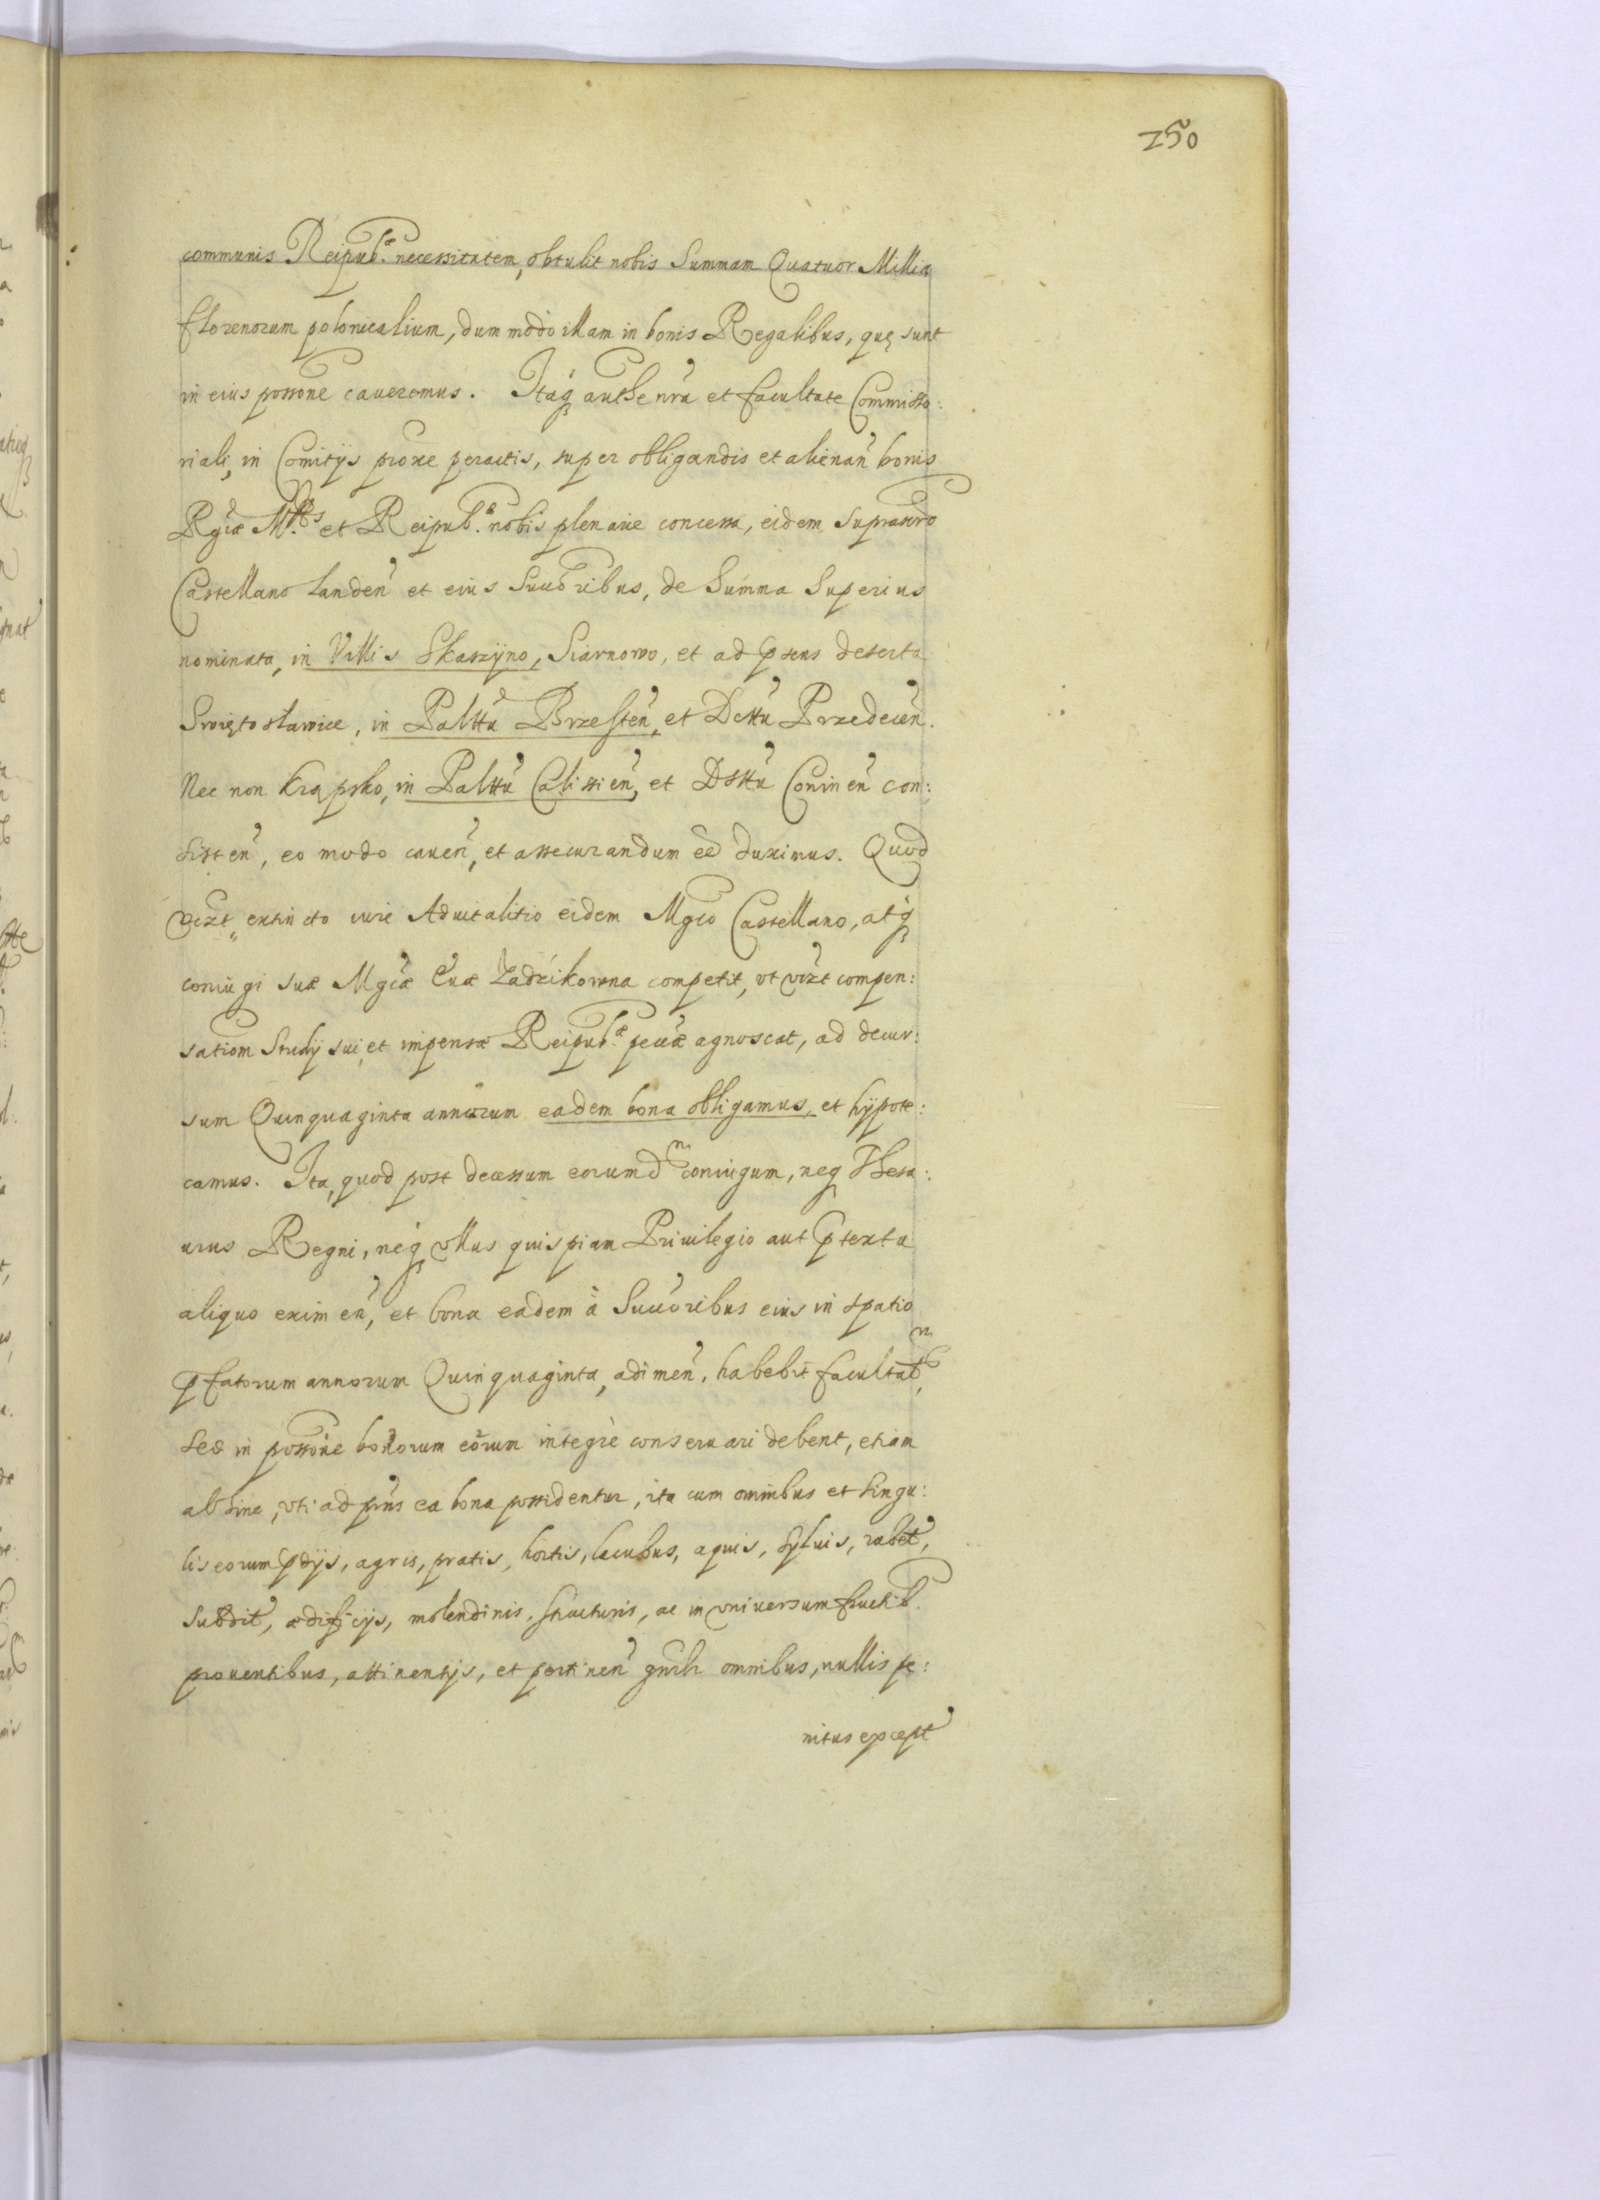 250
communis Reipub.æ necessitatem, obtulit nobis Summam Quatuor Millia
florenorum polonicalium, dummodo illam in bonis Regalibus, quę sunt
in eius possone caueremus. Itaq authe nra et facultate Commisso:
riali, in Comitys proxe peractis, super obligandis et alienan bonis
Rgiæ Mttis et Reipub.æ nobis plenarie concessa, eidem suprascrdo
Castellano Landen et eius Succoribus, de Summa Superius
nominata, in Villis Skaszyno, Siarnowo, et ad pssens deserta
Swiętosławice, in Palttu Brzesten, et Dcttu Przedecen.
Nec non Krąpsko, in Palttu Calissien, et Dsttu Coninen con:
sisten, eo modo cauen, et assecurandum eē duximus. Quod
vizt, extincto iure Aduitalitio eidem Mgco Castellano, atq
coniugi suæ Mgcæ Euæ Zadzikowna competit, vt vizt compen:
sationm Study sui, et impensæ Reipub.æ pecuæ agnoscat, ad decur:
sum Quinquaginta annorum eadem bona obligamus, et hypote:
camus. Ita, quod post decessum eorumdm coniugum, neq Thesa:
urus Regni, neq vllus quispiam Priuilegio aut ptextu
aliquo eximen, et bona eadem à Succoribus eius in spatio
pfatorum annorum Quinquaginta, adimen, habebit facultatm,
sed in possone bonorum eorum integrè conseruari debent, etiam
abhinc, vti ad pns ea bona possidentur, ita cum omnibus et singu:
lis eorum pdys, agris, pratis, hortis, lacubus, aquis, syluis, rubet,
subdit, ædificijs, molendinis, structuris, ac in vniuersum fructib.
prouentibus, attinentys, et pertinen gnrlr omnibus, nullis pe:
nitus except